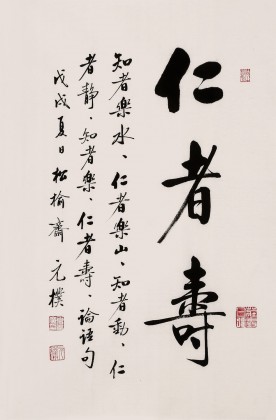 仁者壽
知者樂水、仁者樂山、知者動、仁
者靜、知者樂、仁者壽、論語句
戊戌夏日松榆齋元樸